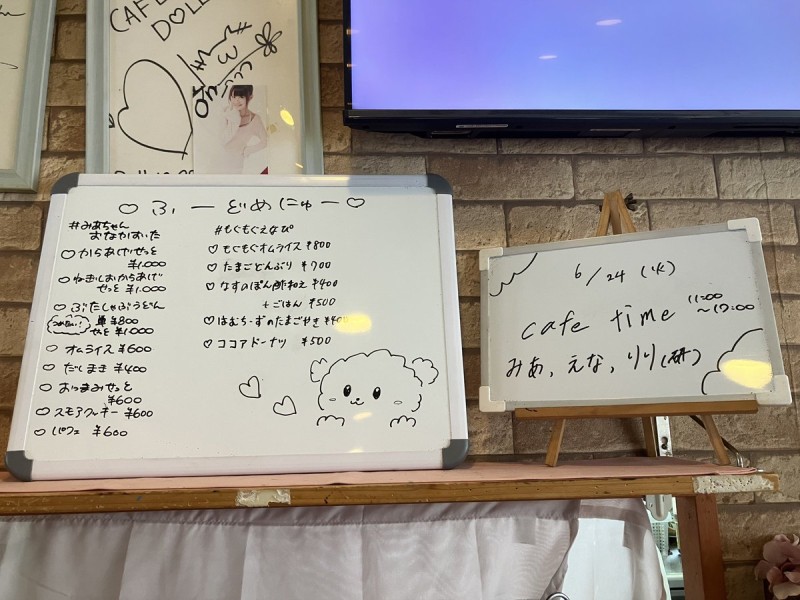 CAFE
DOLL
♡ ふーどめにゅー ♡
#みあちゃん
おなかすいた
♡ からあげせっと
¥1.000
♡ ねぎしおからあげ
せっと ¥1.000
♡ ぶたしゃぶうどん
つめたい! 単 ¥800
せっと ¥1.000
♡ オムライス ¥600
♡ だしまき ¥400
♡ おつまみせっと
¥600
♡ スモアクッキー ¥600
♡ パフェ ¥600
#もぐもぐえなぴ
♡ もぐもぐオムライス ¥800
♡ たまごどんぶり ¥700
♡ なすのぽん酢和え ¥400
+ごはん ¥500
♡ はむちーずのたまごやき ¥400
♡ ココアドーナツ ¥500
6/24 (火)
cafe time 11:00
~17:00
みあ, えな, りり(研)